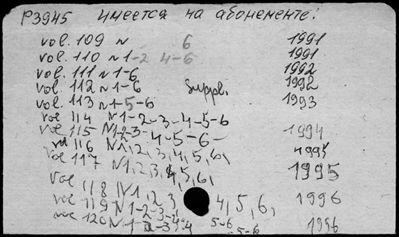 P3945 имеется на абонементе:
vol. 109 N 6 1991
vol. 110 N 1-2 4-6 1991
vol. 111 N 1-6 1992
vol. 112 N 1-6 Suppl. 1992
vol. 113 N 1-5-6 1993
vol 114 N 1-2-3-4-5-6
vol 115 N 1-2-3-4-5-6- 1994
vol 116 N 1,2,3,4,5,6, 1995
vol 117 N 1,2,3,4,5,6, 1995
vol 118 N 1,2,3 4,5,6, 1996
vol 119 N 1-2-3-4 5-6 1996
vol 120 N 1-2-3-4 5-6